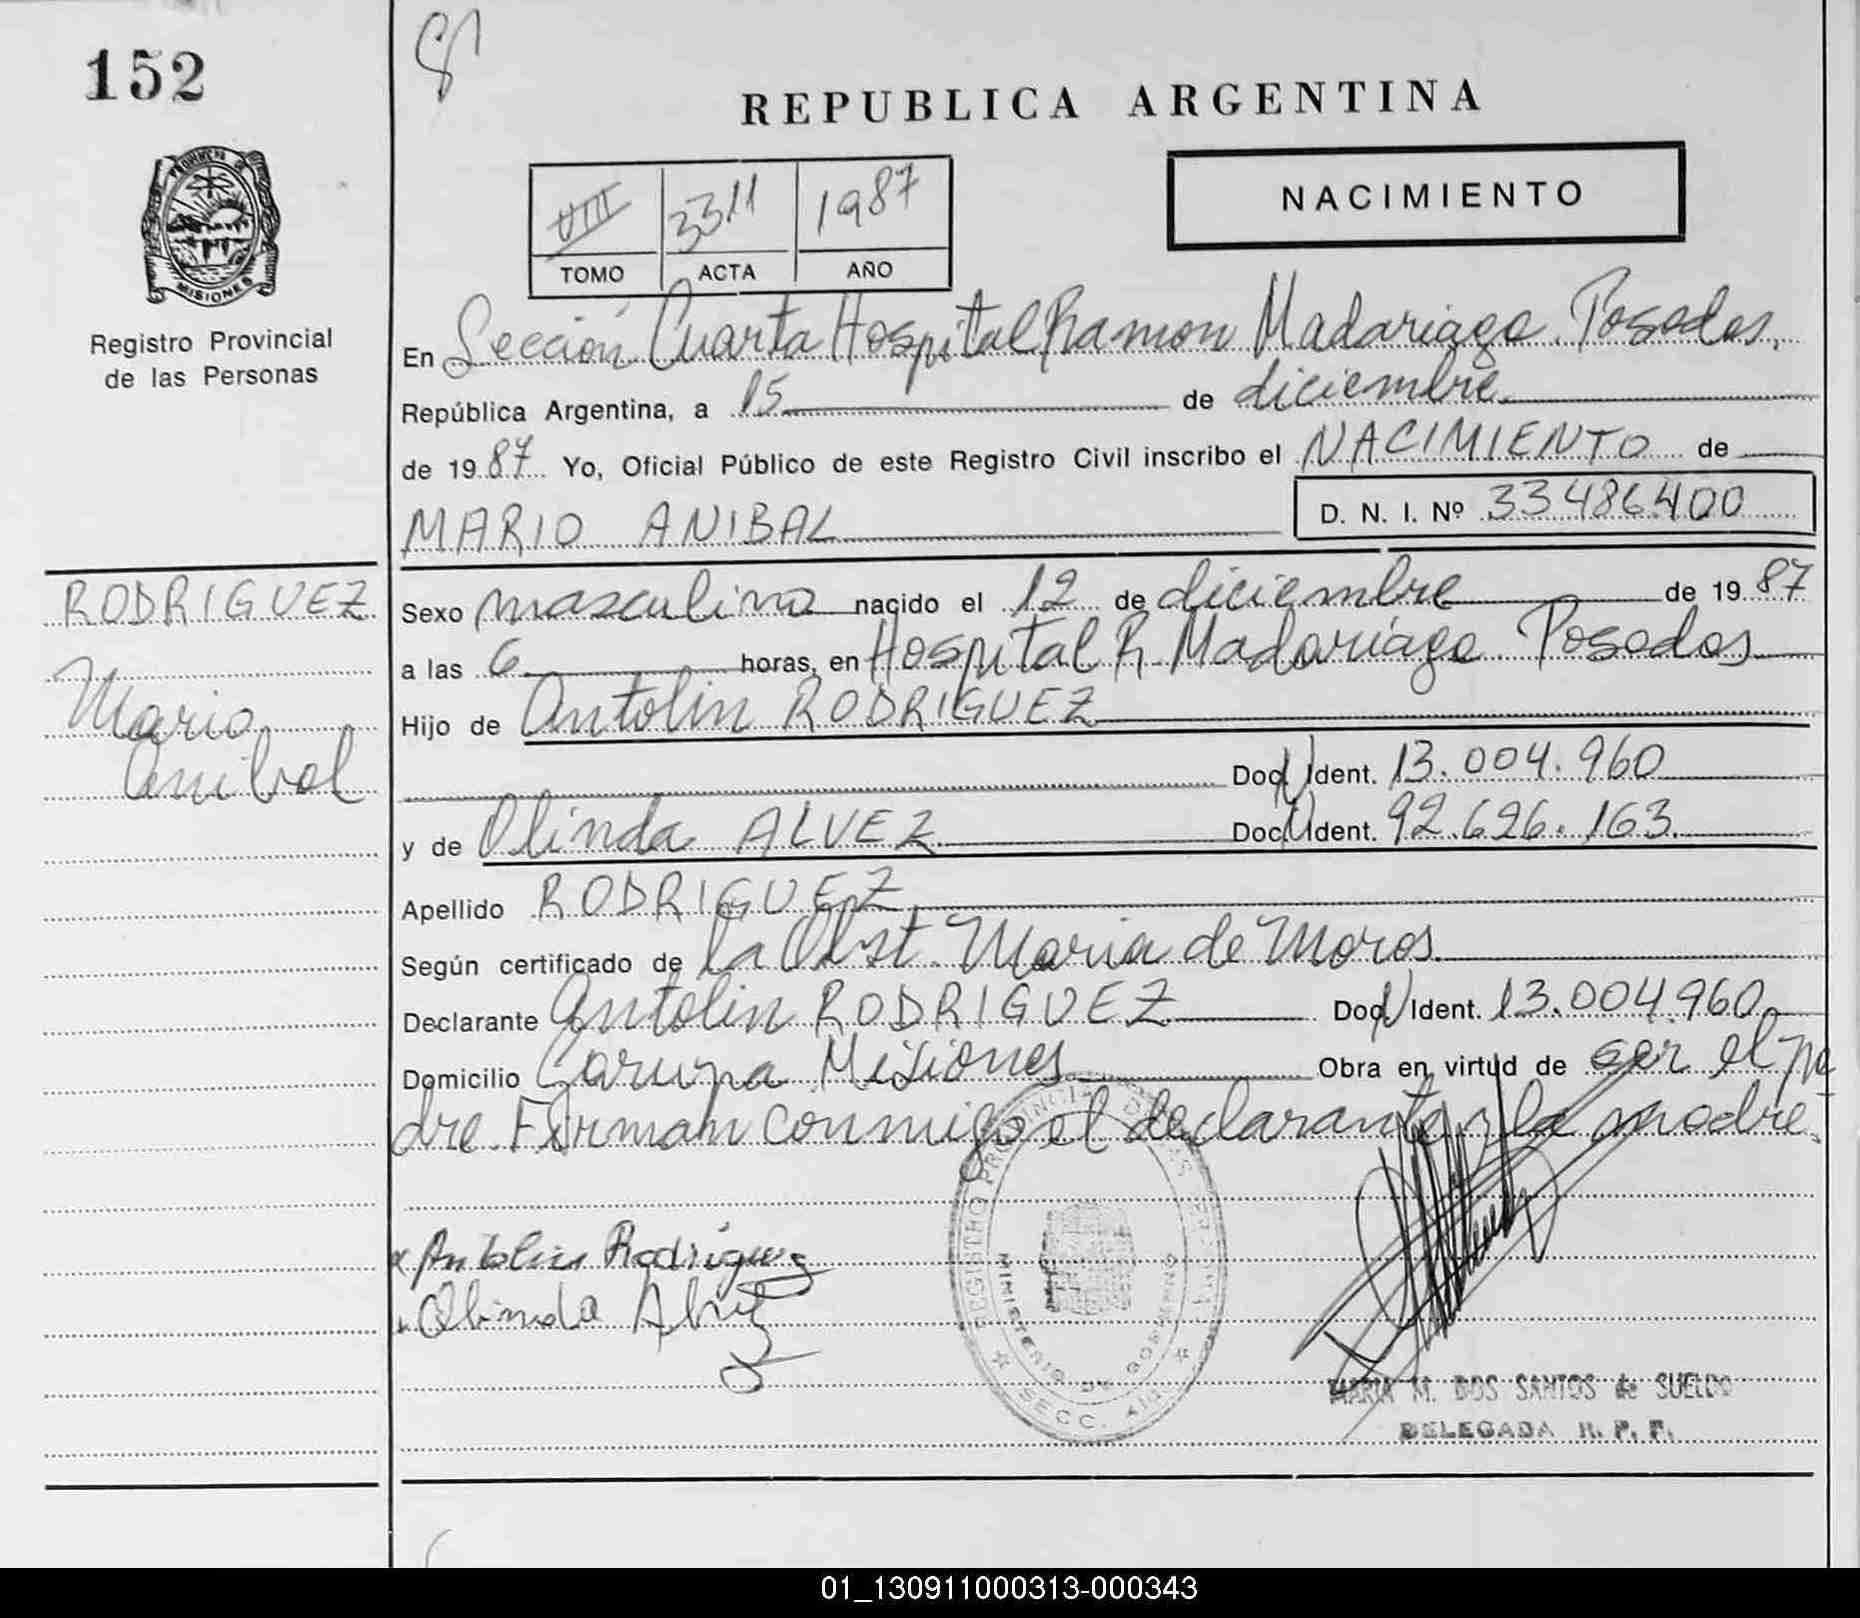 152
REPUBLICA ARGENTINA
PROVINCIA DE
MISIONES
Registro Provincial
de las Personas
VIII 3311 1987
TOMO ACTA AÑO
NACIMIENTO
En Sección Cuarta Hospital Ramon Madariaga. Posadas,
República Argentina, a 15 de diciembre
de 1987 Yo, Oficial Público de este Registro Civil inscribo el NACIMIENTO de
MARIO ANIBAL D. N. I. Nº 33486400
RODRIGUEZ
Mario
Anibal
Sexo masculino nacido el 12 de diciembre de 1987
a las 6 horas, en Hospital R. Madariaga Posadas
Hijo de Antolin RODRIGUEZ
Doc. N Ident. 13.004.960
y de Olinda ALVEZ Doc. N Ident. 92.626.163
Apellido RODRIGUEZ
Según certificado de la Obst. Maria de Moros
Declarante Antolin RODRIGUEZ Doc. N Ident. 13.004.960
Domicilio Garupa Misiones Obra en virtud de ser el pa
dre. Firman conmigo el declarante y la madre.
Antolin Rodriguez
Olinda Alvez
REGISTRO PROVINCIAL DE LAS PERSONAS
MINISTERIO DE GOBIERNO
SECC.
MARIA M. DOS SANTOS de SUELDO
DELEGADA R. P. P.
01_130911000313-000343